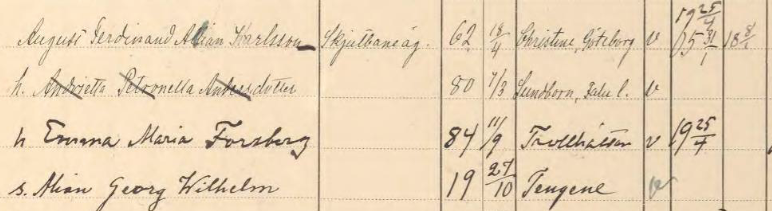 19 25/4
August Ferdinand Allian Karlsson Skjutbaneäg. 62 18/4 Christine, Göteborg v 15 31/1 18 8/1
h. Andrietta Petronella Andersdotter 80 7/3 Sundborn, v
h Emma Maria Forsberg 84 11/9 Trollhättan v 19 25/4
s. Allan Georg Wilhelm 19 27/10 Tengene v